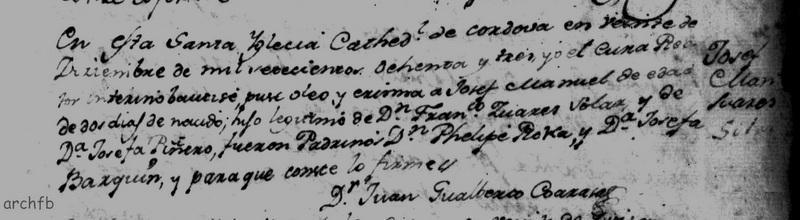 En esta Santa Iglecia Cathed.l de Cordova en veinte de
Diziembre de mil setecientos ochenta y tres, yo el Cura Rec
tor interino bautisé, puse oleo, y crisma a Josef Manuel de edad
de dos dias de nacido, hijo legitimo de D.n Fran.co Zuares Solar, y de
D.a Josefa Piñero, fueron Padrinos D.n Phelipe Roxa, y D.a Josefa
Barquin, y para que conste lo firme
D.r Juan Gualberto
Josef
Man
Suares
archfb